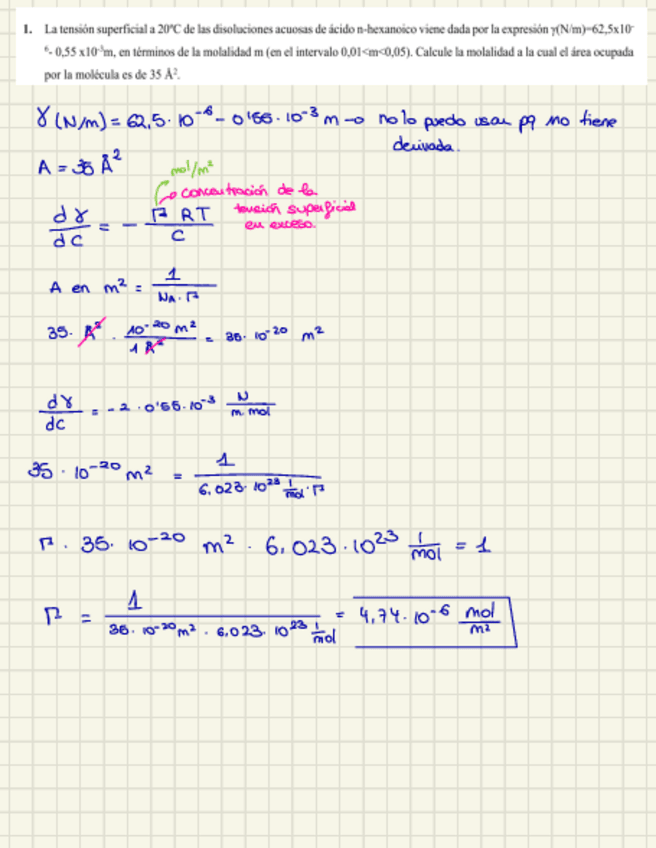 1. La tensión superficial a 20ºC de las disoluciones acuosas de ácido n-hexanoico viene dada por la expresión γ(N/m)=62,5x10-
6- 0,55 x10-3m, en términos de la molalidad m (en el intervalo 0,01<m<0,05). Calcule la molalidad a la cual el área ocupada
por la molécula es de 35 Å2.
γ (N/m) = 62,5·10^-6 - 0'55·10^-3 m → no lo puedo usar pq no tiene
derivada.
A = 35 Å^2
mol/m^2
concentración de la
tensión superficial
en exceso.
dγ/dC = - Γ RT/C
A en m^2 = 1/(NA·Γ)
35· Å^2 · 10^-20 m^2/1 Å^2 = 35·10^-20 m^2
dγ/dC = -2·0'55·10^-3 N/m·mol
35·10^-20 m^2 = 1/(6,023·10^23 1/mol·Γ)
Γ·35·10^-20 m^2·6,023·10^23 1/mol = 1
Γ = 1/(35·10^-20 m^2·6,023·10^23 1/mol) = 4,74·10^-6 mol/m^2